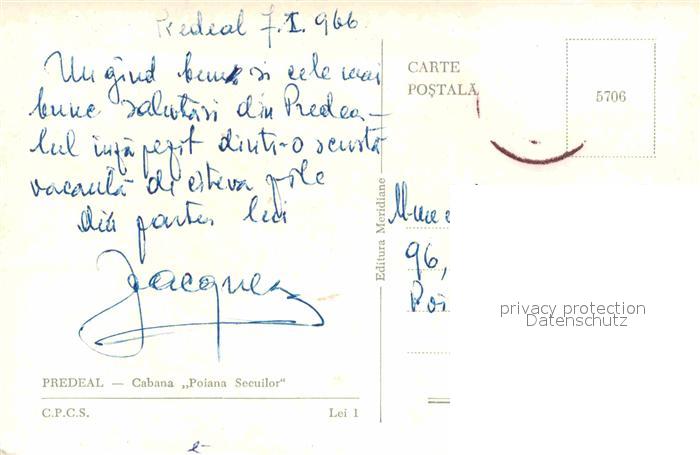 Predeal 7.I.966
Un gînd bun și cele mai
bune salutări din Predea-
lul înzăpezit dintr-o scurtă
vacanță de cîteva zile
din partea lui
Jacques
PREDEAL — Cabana „Poiana Secuilor"
C.P.C.S. Lei 1
Editura Meridiane
CARTE
POȘTALĂ
5706
96,
privacy protection
Datenschutz